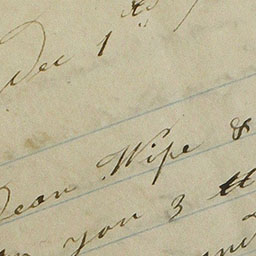 Dec 1st
Dear Wife &
you 3